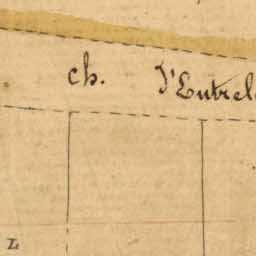 ch. d'Entrel
L